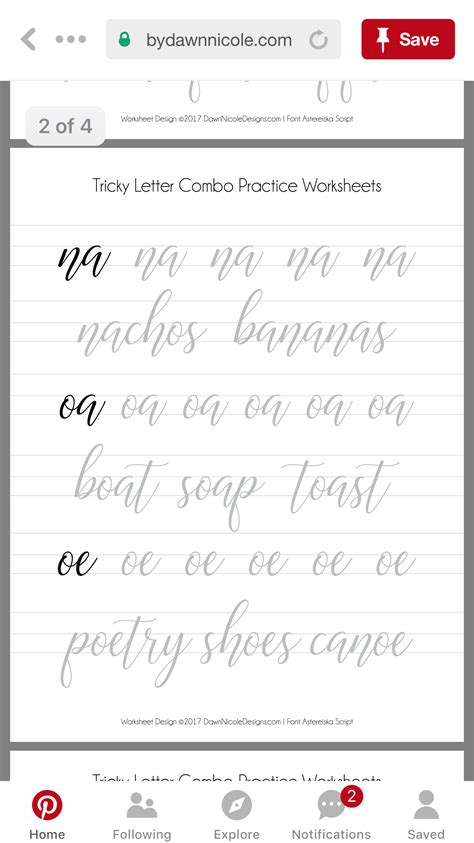 bydawnnicole.com Save
Worksheet Design ©2017 DawnNicoleDesigns.com | Font Astereiska Script
2 of 4
Tricky Letter Combo Practice Worksheets
na na na na na
nachos bananas
oa oa oa oa oa oa
boat soap toast
oe oe oe oe oe oe
poetry shoes canoe
Worksheet Design ©2017 DawnNicoleDesigns.com | Font Astereiska Script
Tricky Letter Combo Practice Worksheets
2
Home Following Explore Notifications Saved